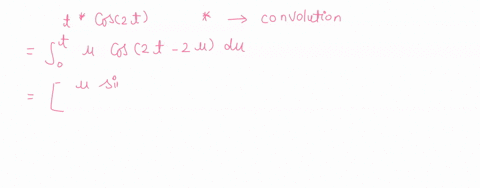 t * Cos(2t)    * → convolution
= ∫₀ᵗ u Cos(2t - 2u) du
= [ u si